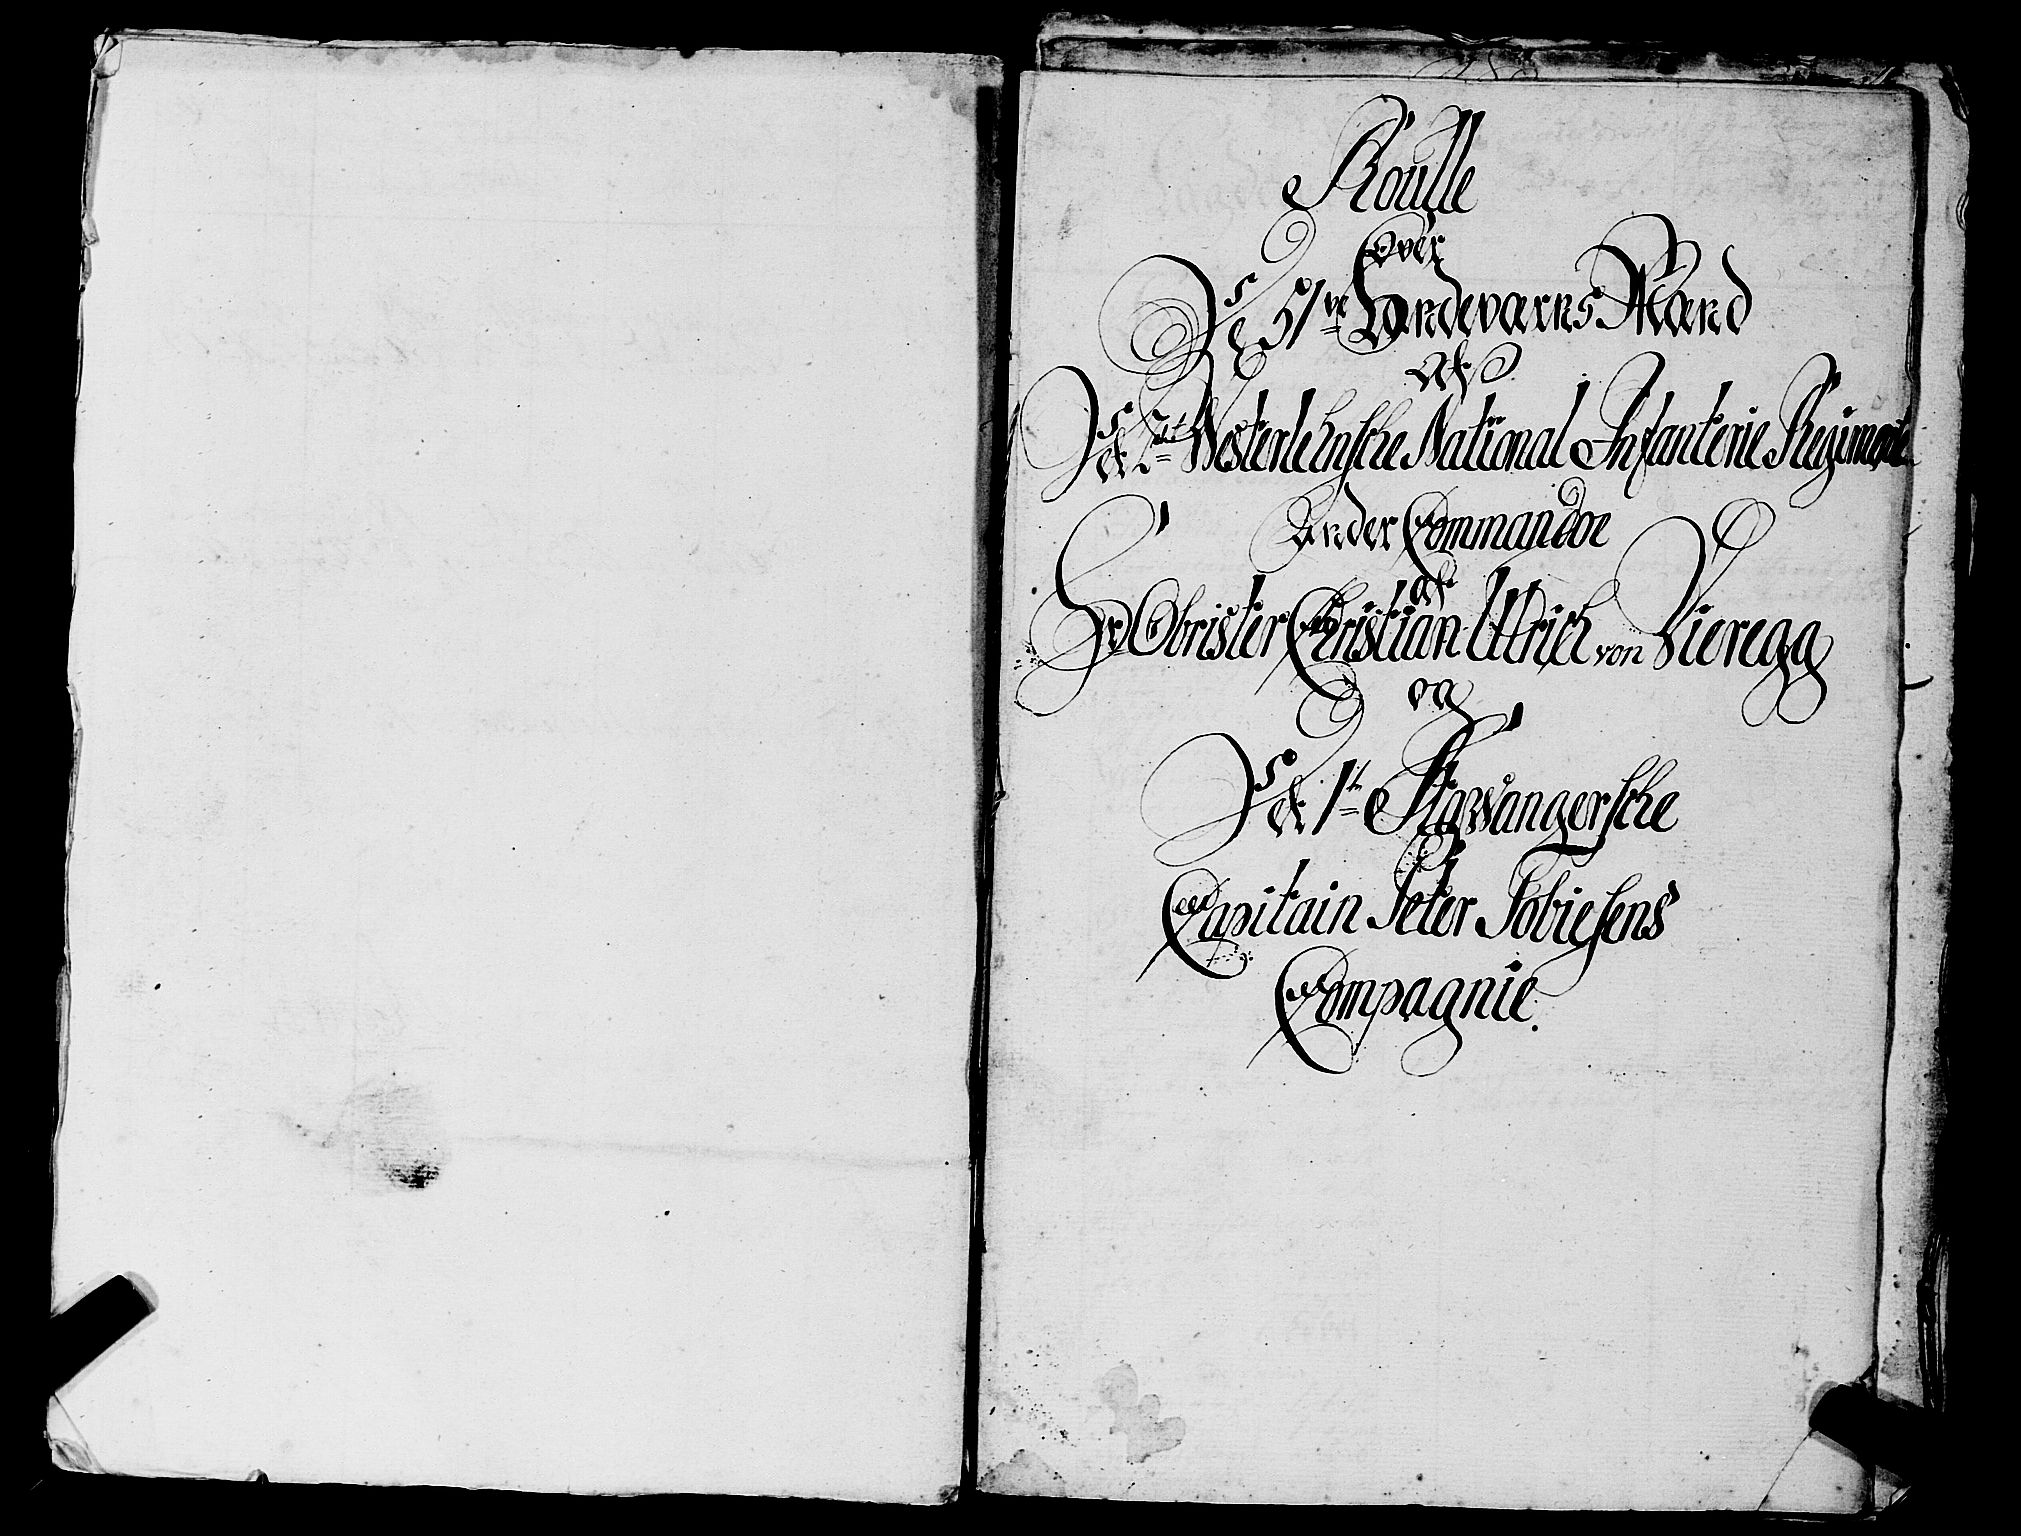 Roulle
Over
De 51ve Landeværns Mænd
Af
Det 2det Westerlehnsche National Infanterie Regimente
Under Commandoe
af
Hr Obrister Christian Ulrich von Vieregg
og
Det 1te Stavangersche
Capitain Peter Tobiesens
Compagnie.